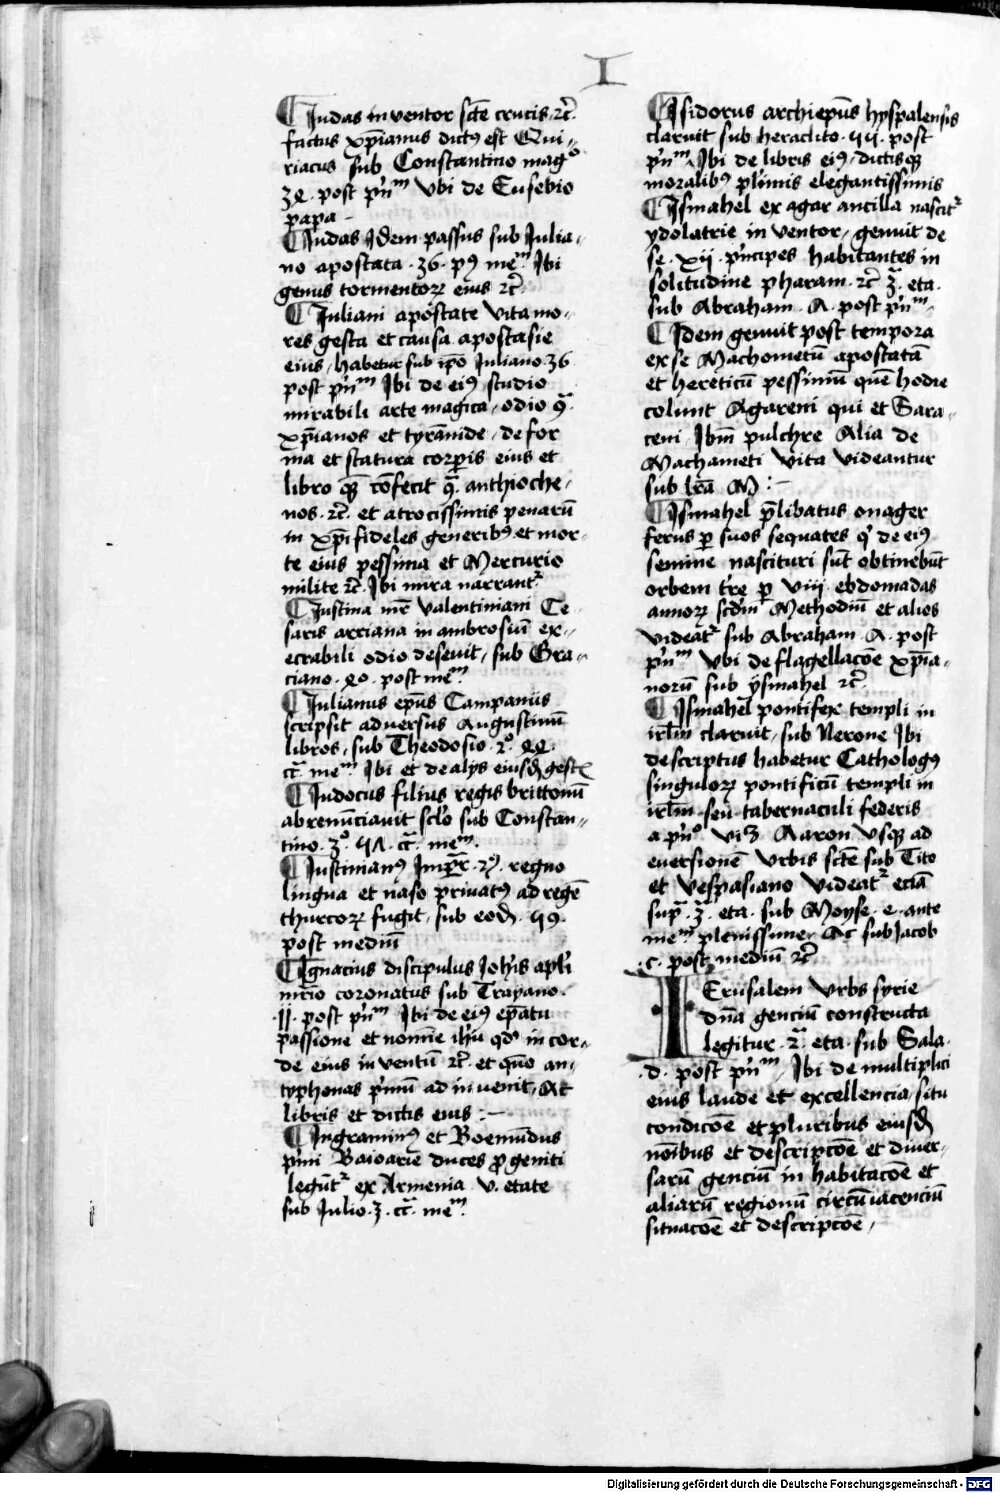 I
¶ Iudas inventor scte crucis, ꝛc̄.
factus xp̄ianus dictꝰ est Qui-
riacus sub Constantino mag°
post pn̄m Vbi de Eusebio
papa -
¶ Iudas Idem passus sub Iulia-
no apostata . 36 . pꝰ mem̄ Ibi
genus tormentoꝝ eius ꝛc̄
¶ Iuliani apostate Vita mo-
res gesta et causa apostasie
eius, habetur sub ip̄o Iuliano 36
post pn̄m Ibi de eiꝰ studio
mirabili arte magica, odio
xp̄ianos et tyrānide, de for
ma et statura corꝑis eius et
libro confecit anthioche-
nos . ꝛc̄. et atrocissimis penarū
in xp̄ifideles generibꝰ et mor-
te eius pessima et Mercurio
milite ꝛc̄. Ibi mira narrant᷑
¶ Iustina mr̄ Valentiniani Ce-
saris arriana in ambrosiū ex-
ecrabili odio deseuit, sub Gra-
ciano . post mem̄.
¶ Iulianus ep̄us Campaniis
scripsit adversus Augustinū
libros, sub Theodosio . 2°
mem̄ Ibi et de alijs
¶ Iudocus filius regis brittonū
abrenūciavit sclo sub Constan-
tino . 3° mem̄.
¶ Iustinianꝰ Imp̄r. regno
lingua et naso privatꝰ ad regē
thurcoꝝ fugit, sub eod̄.
post mediū
¶ Ignacius discipulus Ioh̄is apl̄i
mr̄io coronatus sub Trayano .
. 11 . post pn̄m Ibi de eiꝰ ep̄atu
passione et nomīe ih̄u qd° in cor-
de eius inventū ꝛc̄. et quō an-
typhonas pͥmū ad invenit, Ac
libris et dictis eius : -
¶ Ingraminꝰ et Boemūdus
pͥmi Baioarie duces ꝓgeniti
legūt᷑ ex Armenia V. etate
sub Iulio . 3 . mem̄.
¶ Isidorus archiep̄us hyspalensis
claruit sub heraclito . post
pn̄m Ibi de libris eiꝰ, dictisqꝫ
moralibꝰ plͥimis elegantissimis
¶ Ismahel ex agar ancilla nascit᷑
ydolatrie inventor, genuit de
se . xij . pͥncipes habitantes in
solitudine pharam . ꝛc̄ 3ᵃ. eta .
sub Abraham . A . post pn̄m
¶ Idem genuit post tempora
ex se Machometū apostatā
et hereticū pessimū quē hodie
colunt Agareni qui et Sara-
ceni Ibm̄ pulchre Alia de
Machameti Vita Videantur
sub lr̄a M : -
¶ Ismahel p̄libatus onager
ferus ꝑ suos sequates qͥ de eiꝰ
semine nascituri sūt obtinebūt
orbem tr̄re ꝑ viii ebdomadas
annoꝝ scd̄m Methodiū et alios
Videat᷑ sub Abraham A . post
pn̄m Vbi de flagellacōe xp̄ia-
norū sub ysmahel ꝛc̄
¶ Ismahel pontifex templi in
irl̄m claruit, sub Nerone Ibi
descriptus habetur Cathologꝰ
singuloꝝ pontificū templi in
irl̄m seu tabernaculi federis
a pn̄° viꝫ Aaron Vsqꝫ ad
euersionē Vrbis scte sub Tito
et Vespasiano Videat᷑ eciā
supᵃ . 3ᵃ. eta . sub Moyse . e . ante
mem̄ plenissime, Ac sub Iacob
. c . post mediū ꝛc̄
IErusalem Vrbs syrie
dn̄a genciū constructa
legitur . 2ᵃ. eta . sub Sala .
. d . post pn̄m, Ibi de multiplici
eius laude et excellencia, situ
condicōe et pluribus eiusd̄
noībus et descripcōe et diver-
sarū genciū in habitacōe et
aliarū regionū circūiacenciū
situacōe et descripcōe,
Digitalisierung gefördert durch die Deutsche Forschungsgemeinschaft - DFG